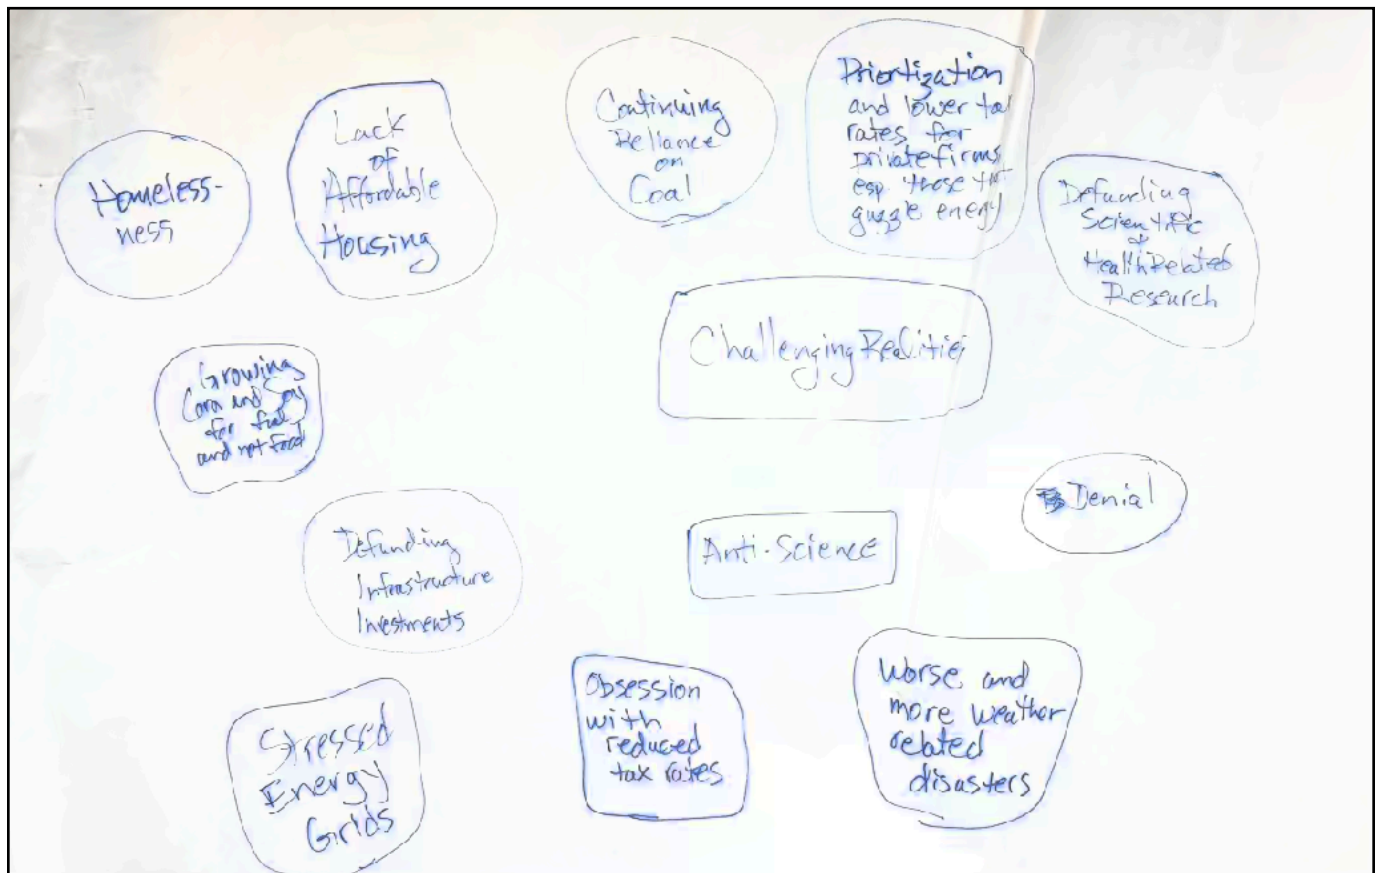 Homeless-
ness
Lack
of
Affordable
Housing
Continuing
Reliance
on
Coal
Priortization
and lower tax
rates for
private firms
esp those that
guzzle energy
Defunding
Scientific
&
Health Related
Research
Challenging Realities
Growing
Corn and Soy
for fuel
and not food
Denial
Defunding
Infrastructure
Investments
Anti-Science
Stressed
Energy
Grids
Obsession
with
reduced
tax rates
Worse and
more weather
related
disasters